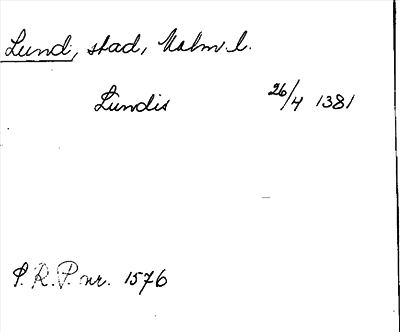 Lund, stad, Malm. l.
Lundis 26/4 1381
P. R. P. nr. 1576